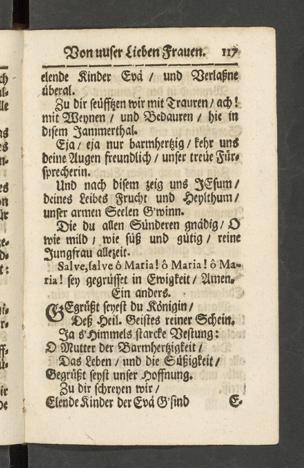 Von unser Lieben Frauen. 117
elende Kinder Evá / und Verlaßne
überal.
Zu dir seüfftzen wir mit Trauren / ach!
mit Weynen / und Bedauren / hie in
disem Jammerthal.
Eja / eja nur barmhertzig / kehr uns
deine Augen freundlich / unser treüe Für-
sprecherin.
Und nach disem zeig uns JEsum /
deines Leibes Frucht und Heylthum /
unser armen Seelen G'winn.
Die du allen Sünderen gnädig / O
wie mild / wie süß und gütig / reine
Jungfrau allezeit.
Salve, salve ô Maria! ô Maria! ô Ma-
ria! sey gegrüsset in Ewigkeit / Amen.
Ein anders.
GEgrüßt seyest du Königin /
Deß Heil. Geistes reiner Schein.
Ja s'Himmels starcke Vestung:
O Mutter der Barmhertzigkeit /
Das Leben / und die Süßigkeit /
Gegrüßt seyst unser Hoffnung.
Zu dir schreyen wir /
Elende Kinder der Evá G'sind
E.